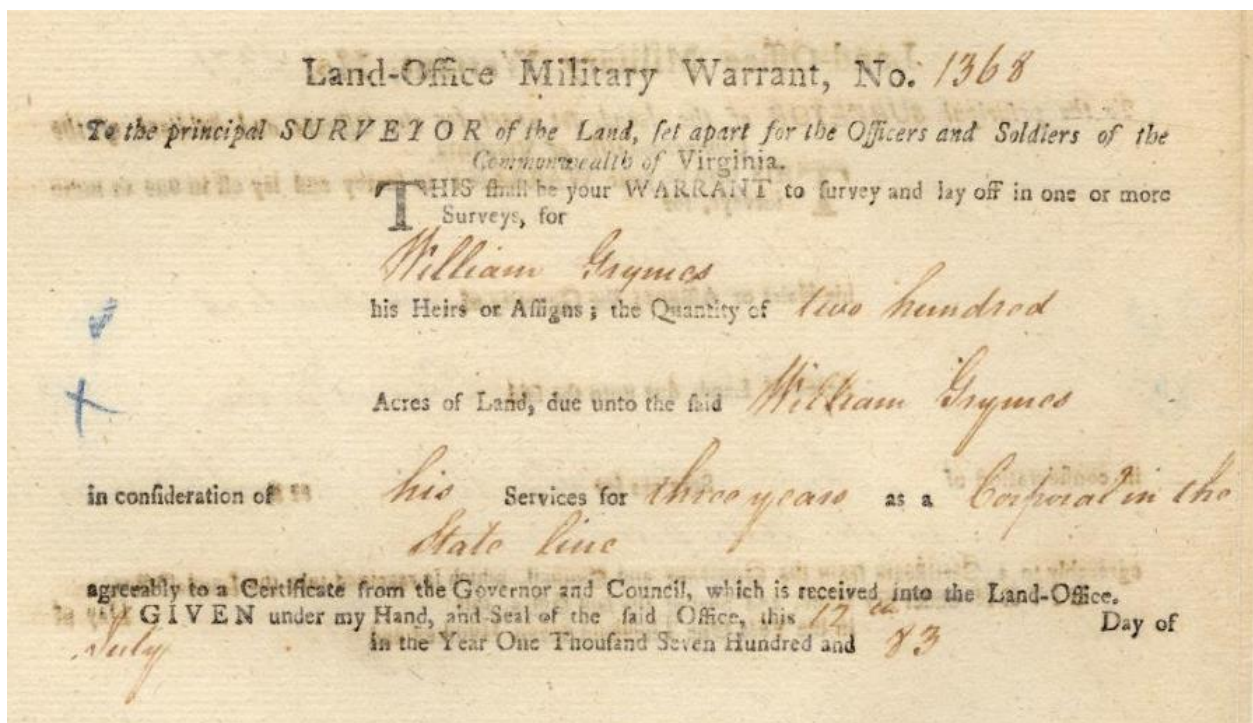 Land-Office Military Warrant, No. 1368
To the principal SURVEYOR of the Land, ſet apart for the Officers and Soldiers of the
Commonwealth of Virginia.
THIS ſhall be your WARRANT to ſurvey and lay off in one or more
Surveys, for
William Grymes
his Heirs or Aſſigns; the Quantity of two hundred
Acres of Land, due unto the ſaid William Grymes
in conſideration of his Services for three years as a Corporal in the
State line
agreeably to a Certificate from the Governor and Council, which is received into the Land-Office.
GIVEN under my Hand, and Seal of the ſaid Office, this 12th Day of
July in the Year One Thouſand Seven Hundred and 83